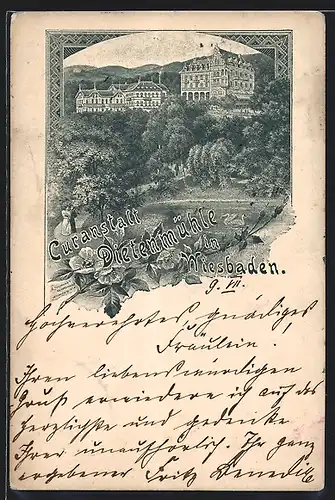 Curanstalt
Dietenmühle
in
Wiesbaden.
9. VII.
Hochverehrtes gnädiges
Fräulein!
Ihren liebenswürdigen
Gruß erwiedere ich auf das
herzlichste und gedenke
Ihrer unaufhörlich. Ihr ganz
ergebener Fritz Benedik